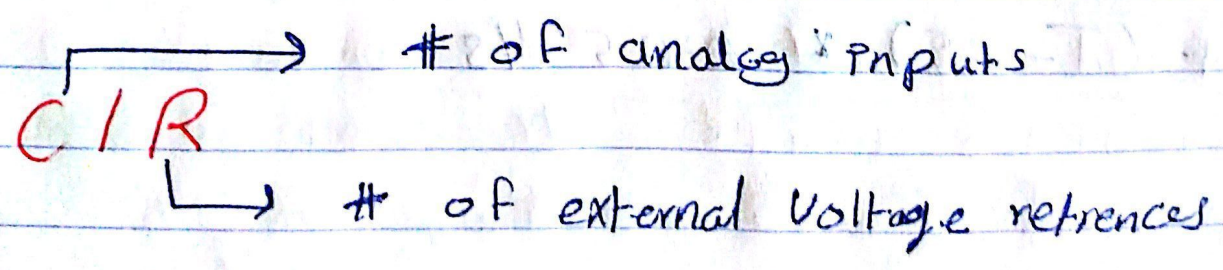 # of analog inputs
C/R
# of external Voltage refrences